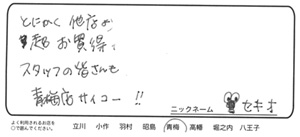 とにかく他店より
超お買得!
スタッフの皆さんも
青梅店サイコー!!
ニックネーム セキネ
よく利用されるお店を
○で囲んでください。
立川 小作 羽村 昭島 青梅 高幡 堀之内 八王子